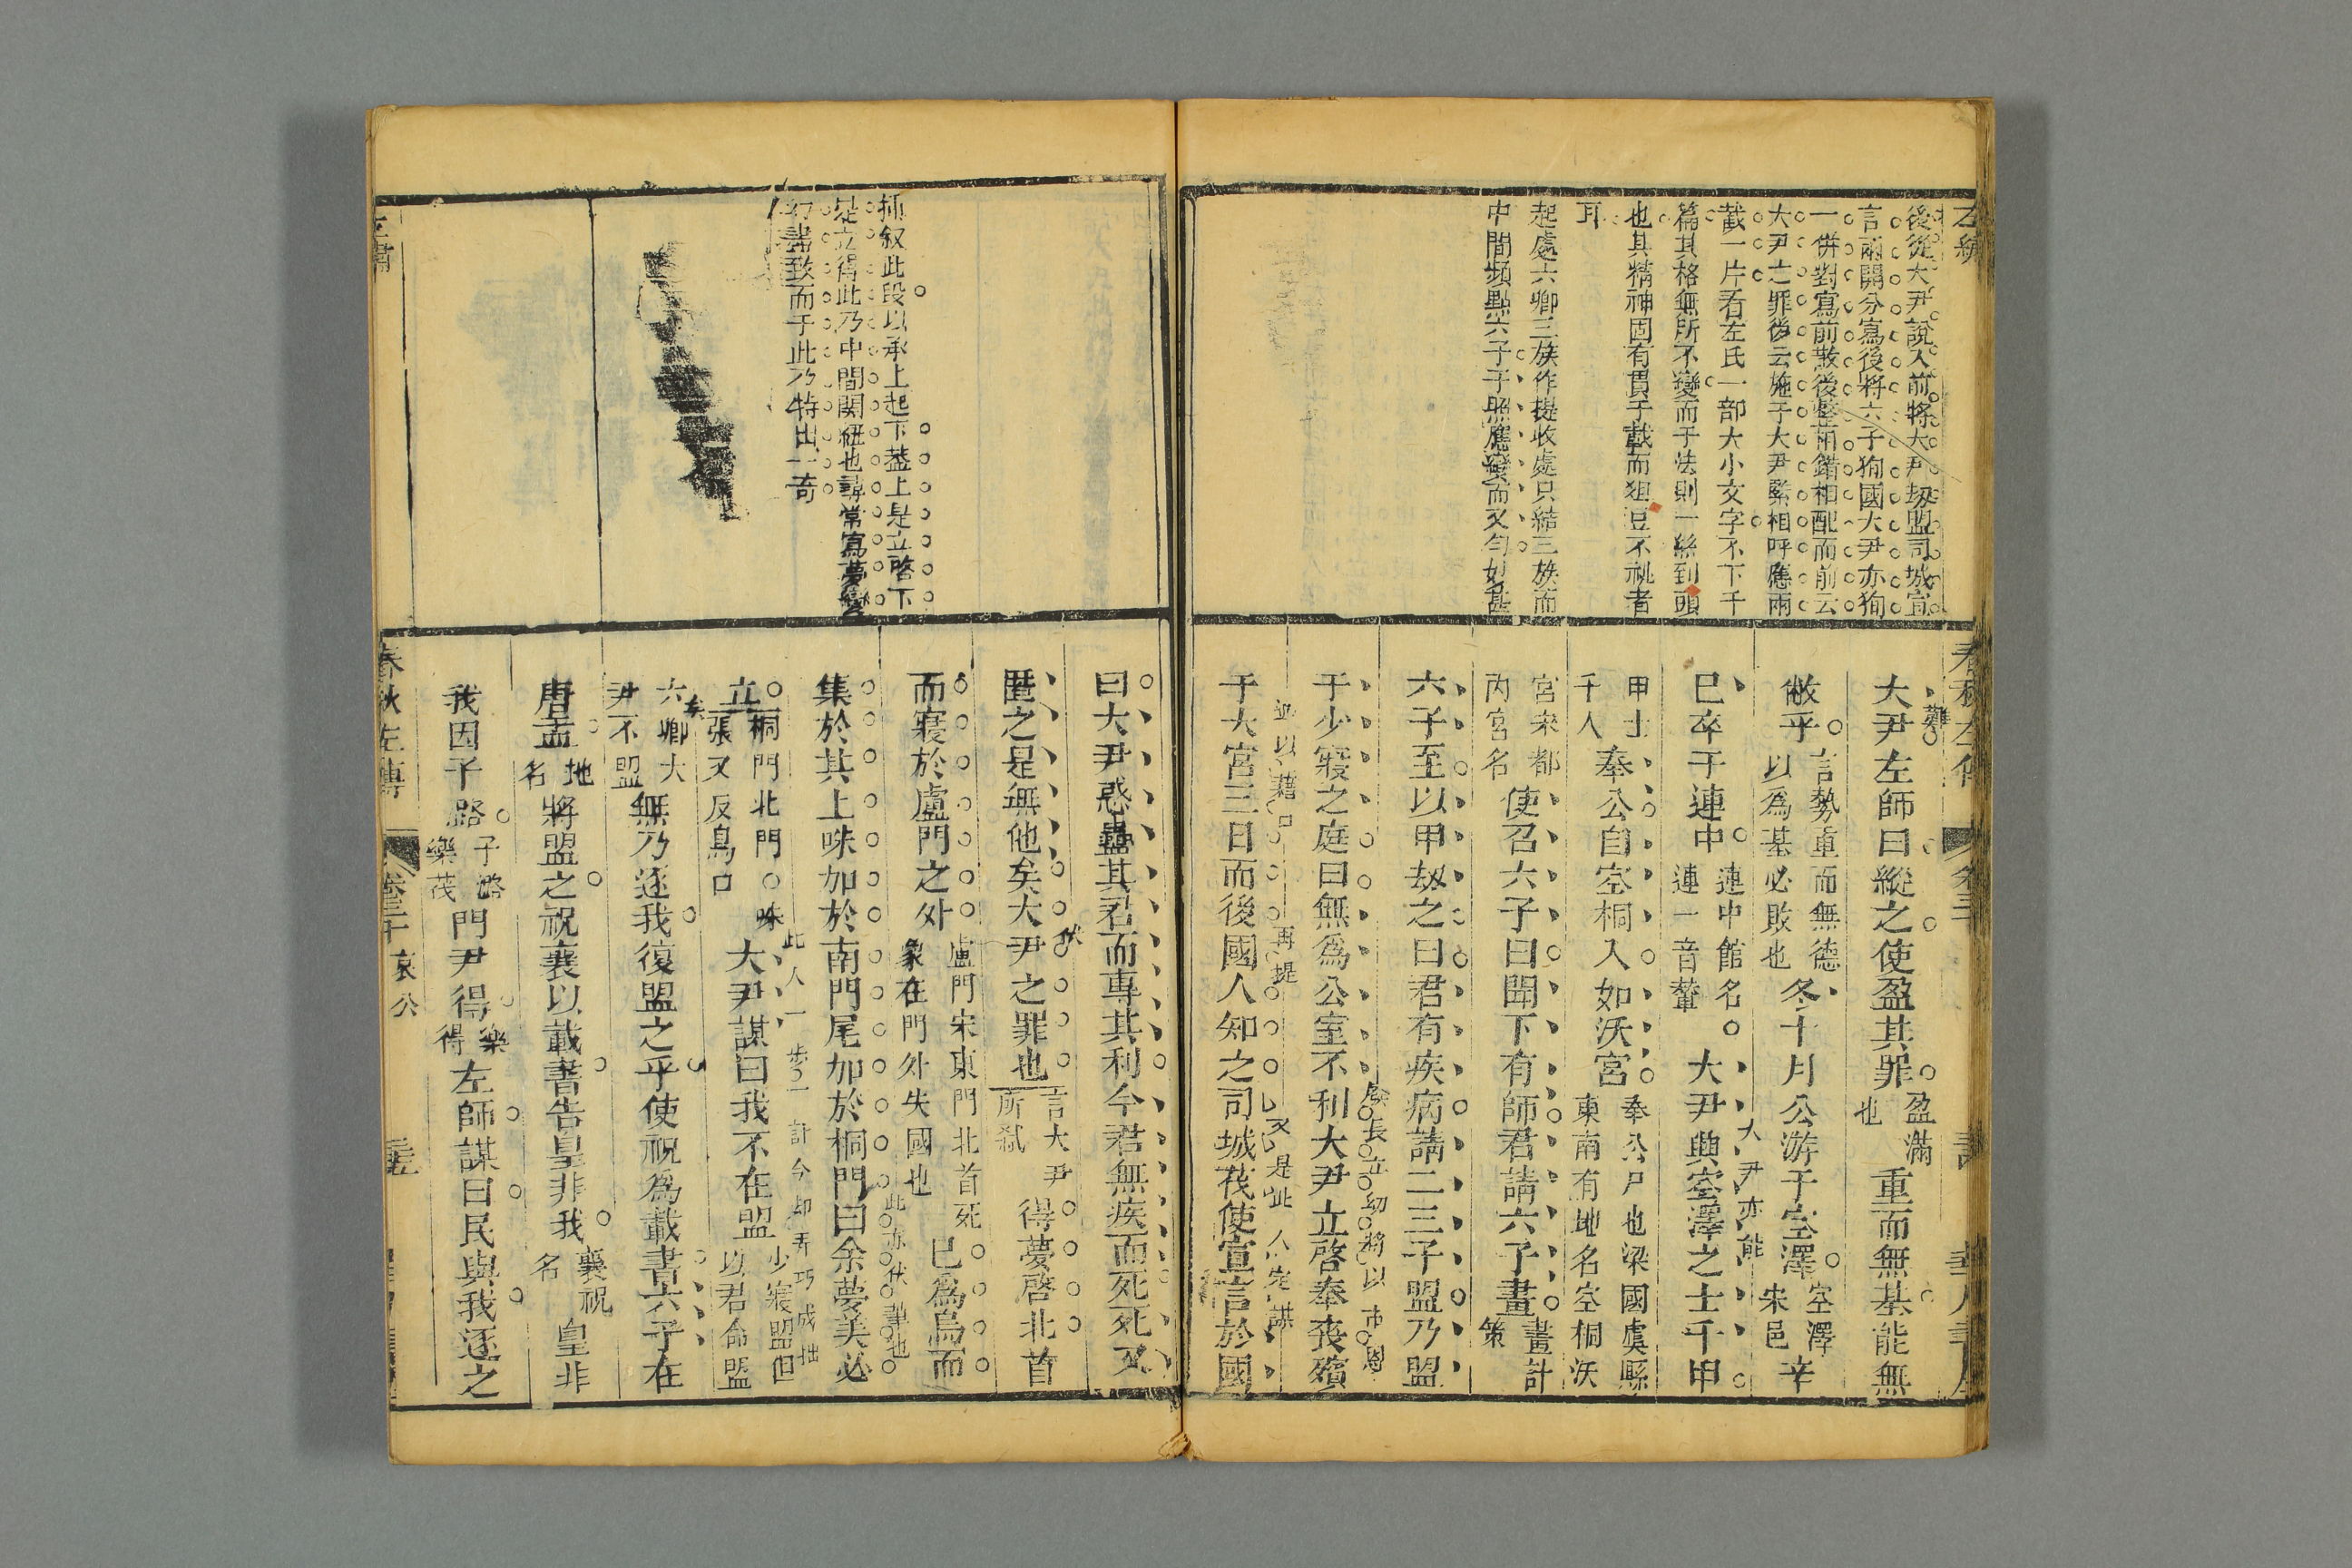 左繡
後從大尹說入前將大尹刼盟司城宣
言兩開分寫後將六子狥國大尹亦狥
一併對寫前散後整兩錯相配而前云
大尹之罪後云施于大尹緊相呼應兩
截一片看左氏一部大小文字不下千
篇其格無所不變而于法則一絲到頭
也其精神固有貫于載而俎豆不祧者
耳
起處六卿三族作提收處只結三族而
中間頻點六子于照應變而又匀如甚
春秋左傳
大尹左師曰縱之使盈其罪盈滿
也重而無基能無
敝乎言勢重而無德
以為基必敗也冬十月公游于空澤空澤
宋邑辛
巳卒于連中連中館名
連一音輦大尹興空澤之士千甲
甲士
千人奉公自空桐入如沃宮奉公尸也梁國虞縣
東南有地名空桐沃
宮宋都
內宮名使召六子曰聞下有師君請六子畫畫計
策
六子至以甲刼之曰君有疾病請二三子盟乃盟
于少寢之庭曰無為公室不利大尹立啓奉喪殯
于大宮三日而後國人知之司城茷使宣言於國
大尹亦能
再提
又是
插叙此段以承上起下葢上是立啓下
是立得此乃中間關紐也尋常寫夢變
幻諸致而于此乃特出一奇
曰大尹惑蠱其君而專其利今君無疾而死死又
匿之是無他矣大尹之罪也言大尹
所弒得夢啓北首
而寢於盧門之外盧門宋東門北首死
象在門外失國也已為烏而
集於其上咮加於南門尾加於桐門曰余夢美必
此亦伏筆也
立桐門北門○咮
張又反鳥口大尹謀曰我不在盟少寢盟但
以君命盟
此人一步一計今却弄巧成拙
六卿大
尹不盟無乃逐我復盟之乎使祝為載書六子在
唐盂地
名將盟之祝襄以載書告皇非我襄祝
名皇非
我因子潞子潞
樂茷門尹得樂
得左師謀曰民與我逐之
春秋左傳
卷三十
哀公